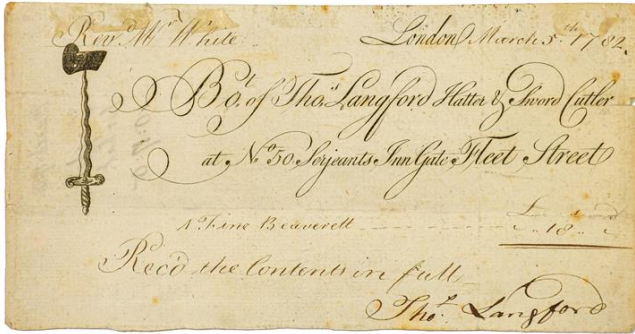 Rev. Mr. White London March 5th 1782.
Bot. of Thos. Langford Hatter & Sword Cutler
at No. 50 Serjeants Inn Gate Fleet Street
£
A Fine Beaverett 18
Rec'd the Contents in full
Thos. Langford